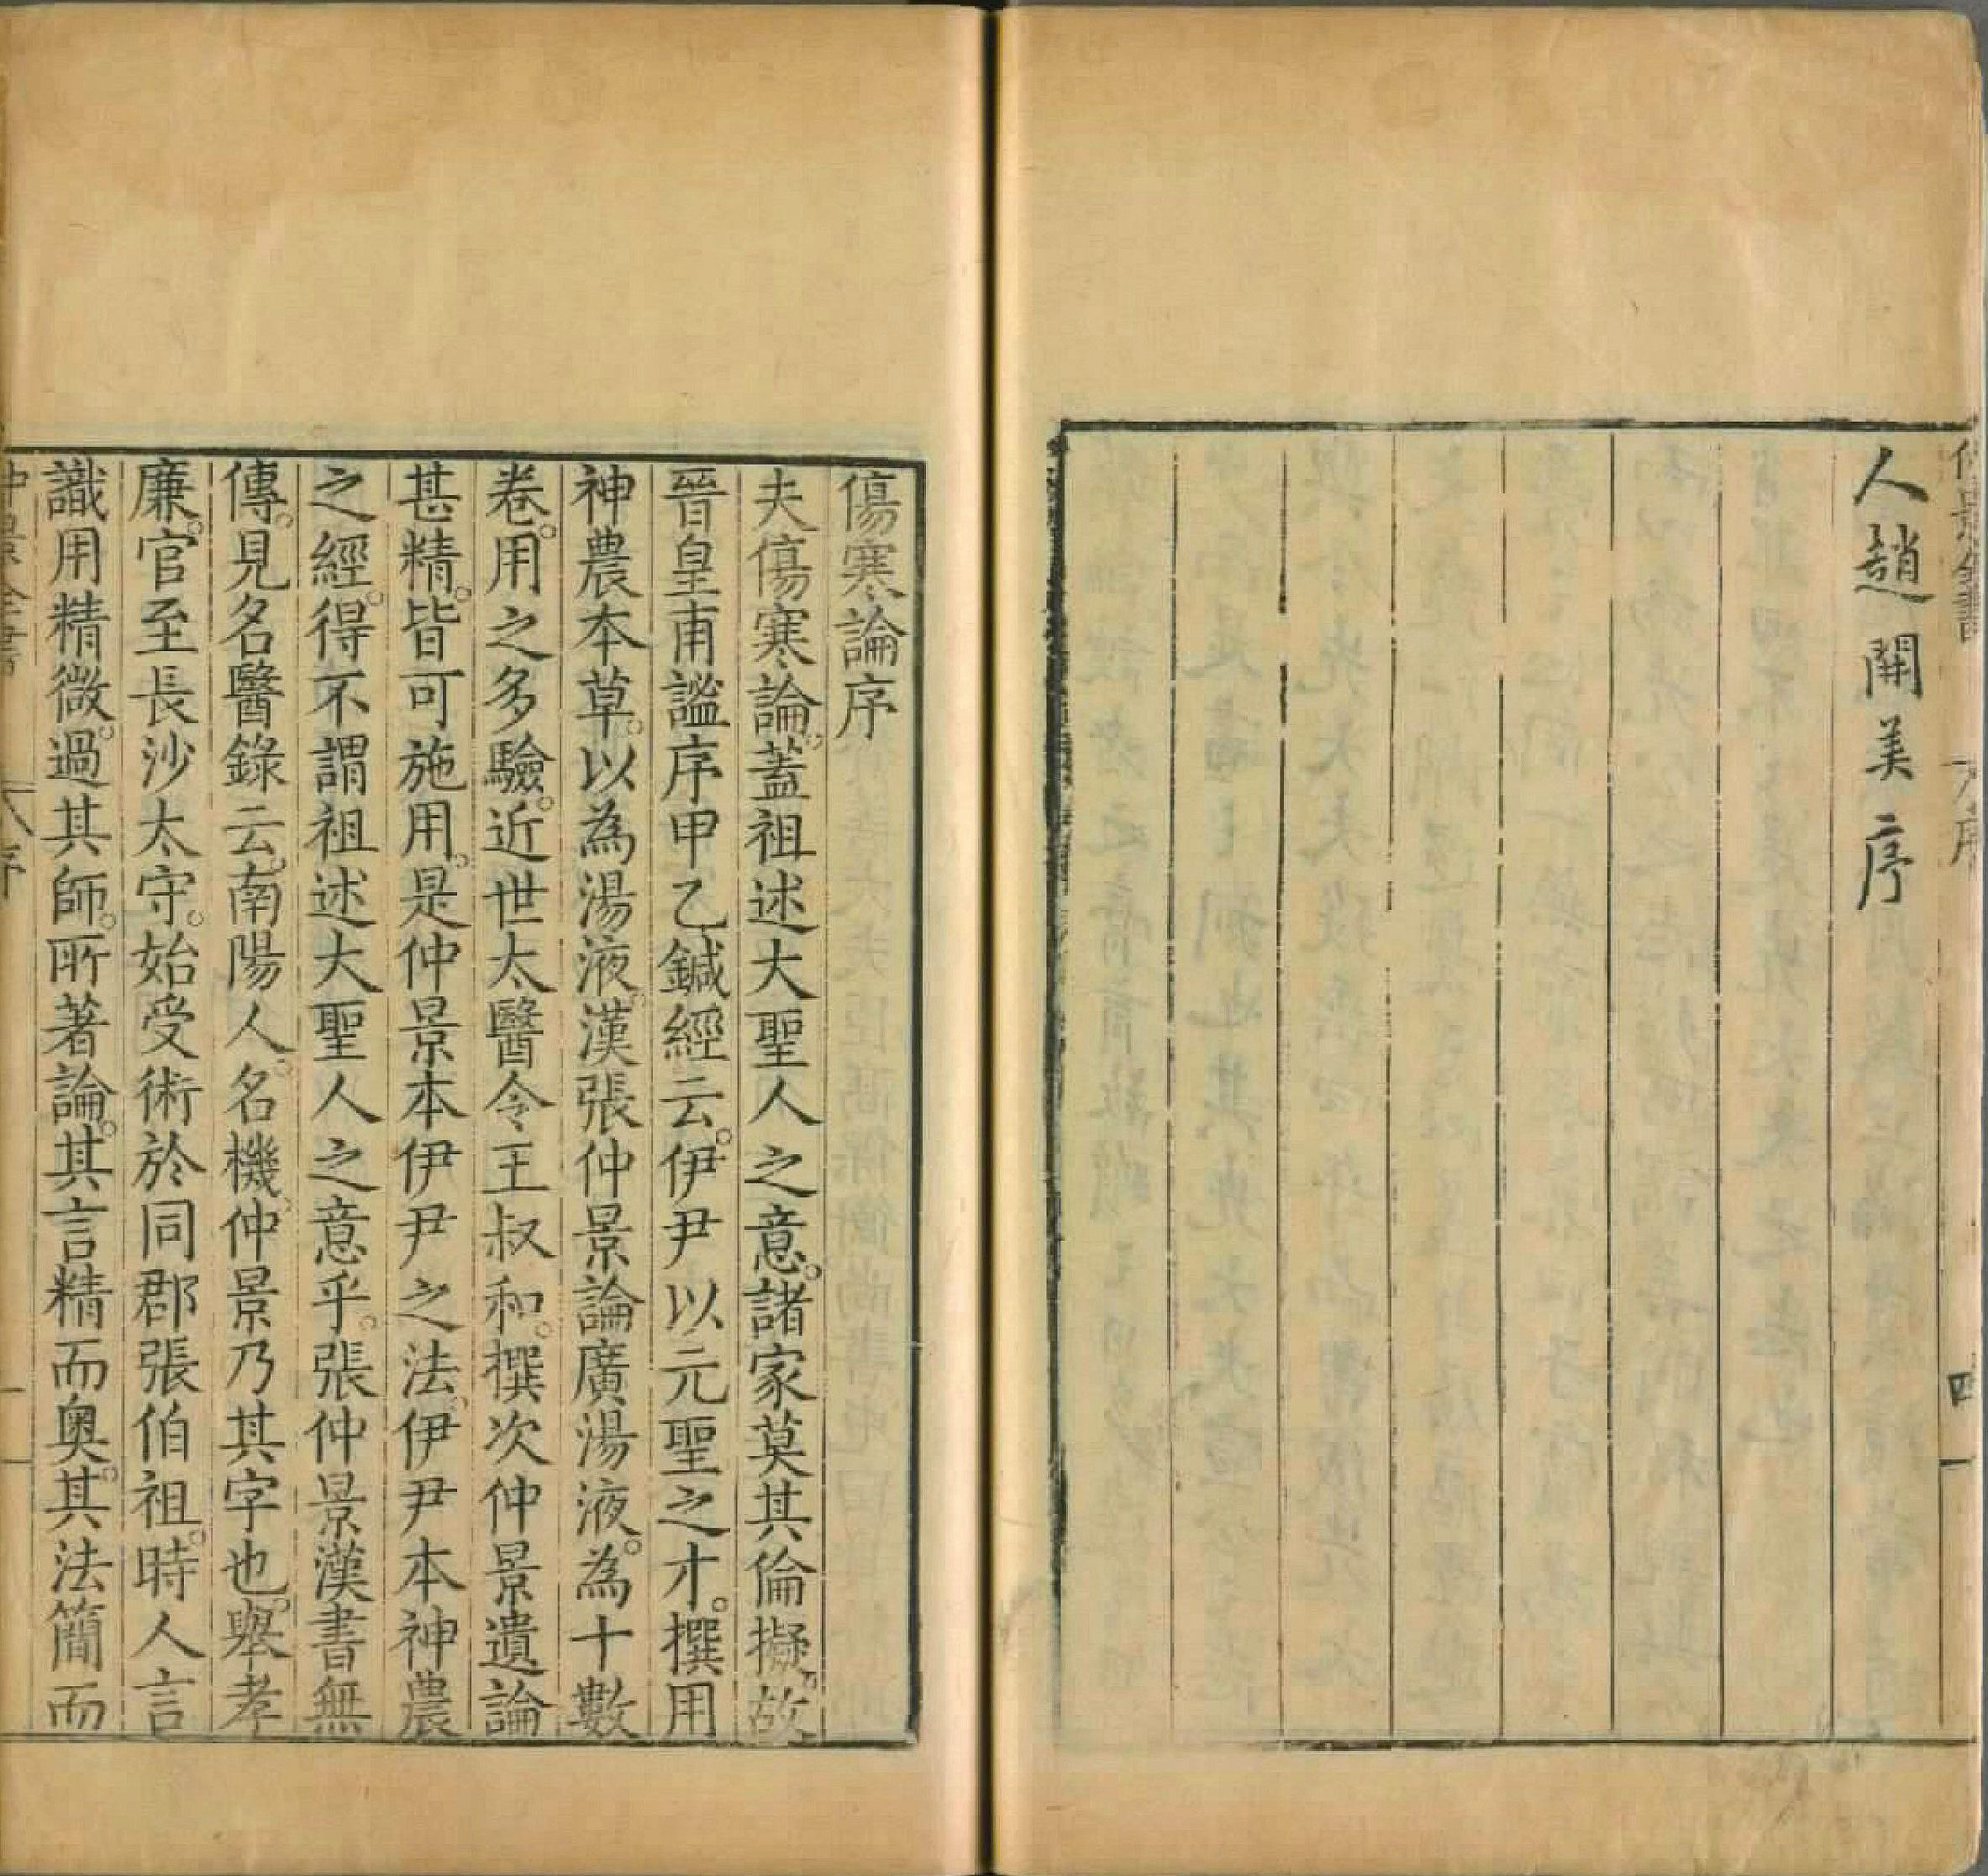 人趙開美序
四
傷寒論序
夫傷寒論。蓋祖述大聖人之意。諸家莫其倫擬。故
晉皇甫謐序甲乙鍼經云。伊尹以元聖之才。撰用
神農本草。以為湯液。漢張仲景論廣湯液。為十數
卷。用之多驗。近世太醫令王叔和。撰次仲景遺論
甚精。皆可施用。是仲景本伊尹之法。伊尹本神農
之經。得不謂祖述大聖人之意乎。張仲景漢書無
傳。見名醫錄云。南陽人。名機。仲景乃其字也。舉孝
廉。官至長沙太守。始受術於同郡張伯祖。時人言
識用精微。過其師。所著論。其言精而奧。其法簡而